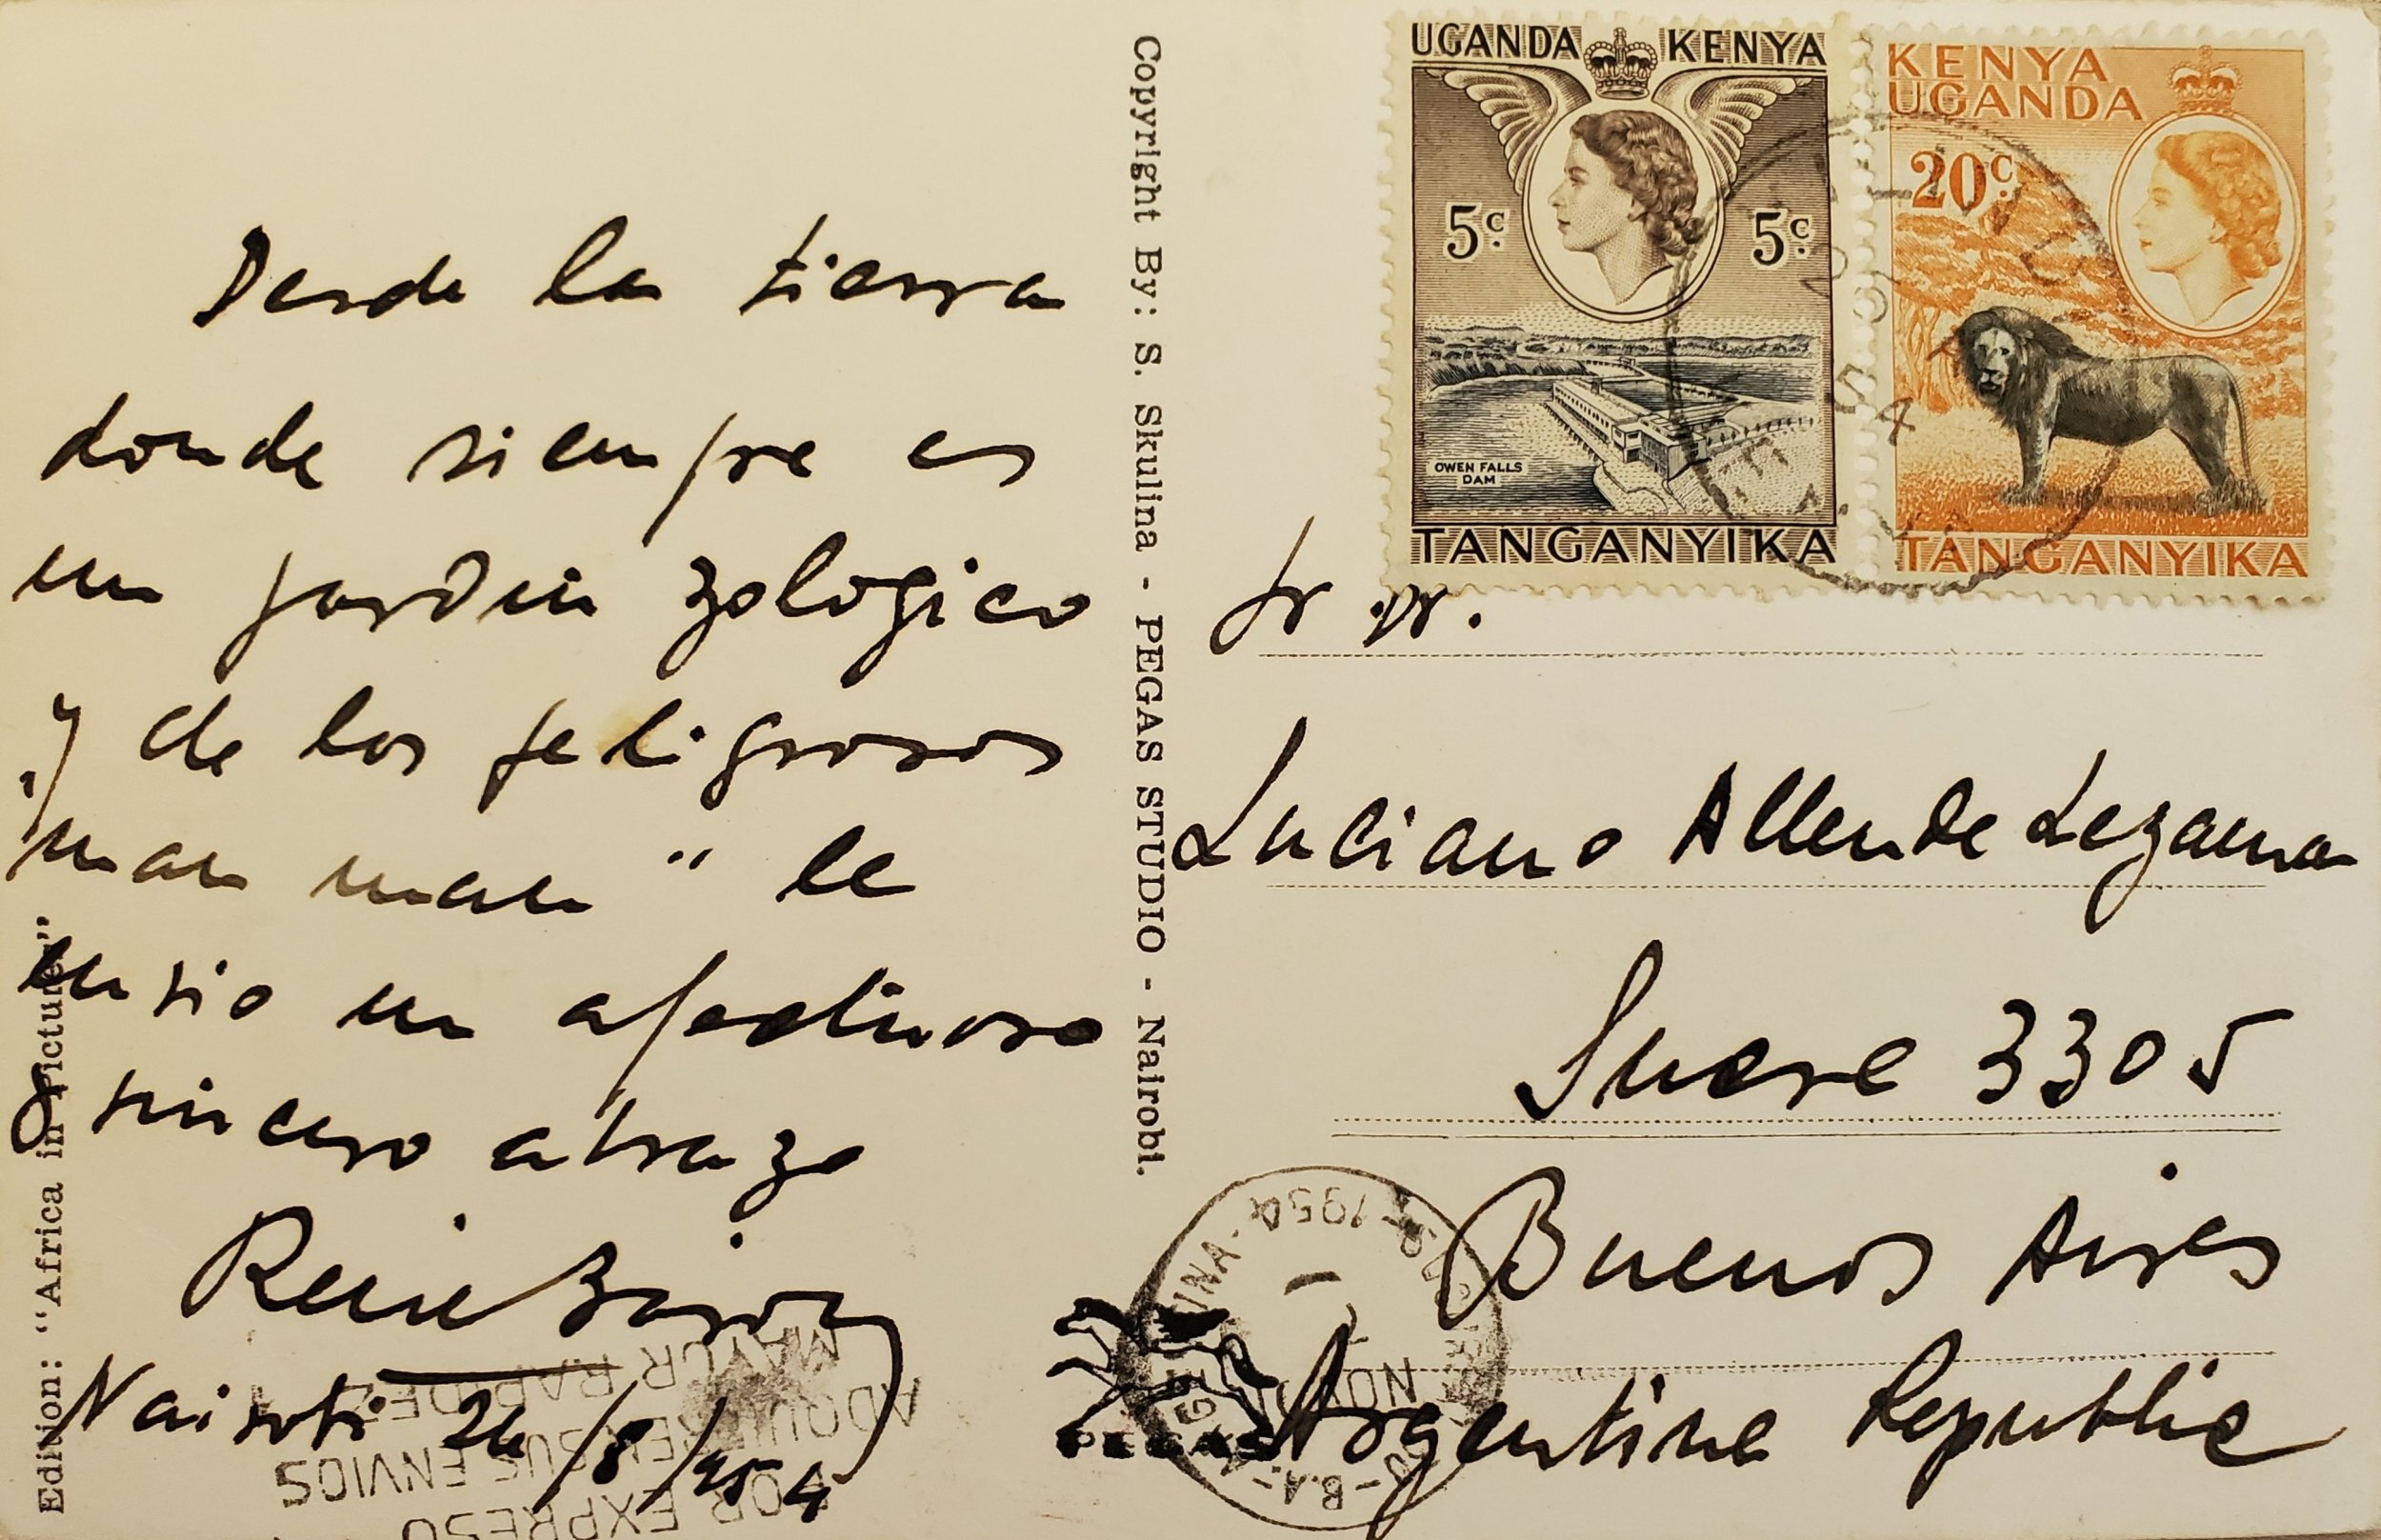 Desde la tierra
donde siempre es
un jardin zologico
y de los peligrosos
"mau mau" le
envio un afectuoso
y sincero abrazo
Nairobi 26/8/954
Edition: "Africa in Picture"
Copyright By: S. Skulina - PEGAS STUDIO - Nairobi.
UGANDA KENYA
5c. 5c.
OWEN FALLS
DAM
TANGANYIKA
KENYA
UGANDA
20c.
TANGANYIKA
Luciano Allende Lezama
Sucre 3305
Buenos Aires
Argentine Republic
PEGAS
1954
POR EXPRESO
SUS ENVIOS
MAYOR RAPIDEZ